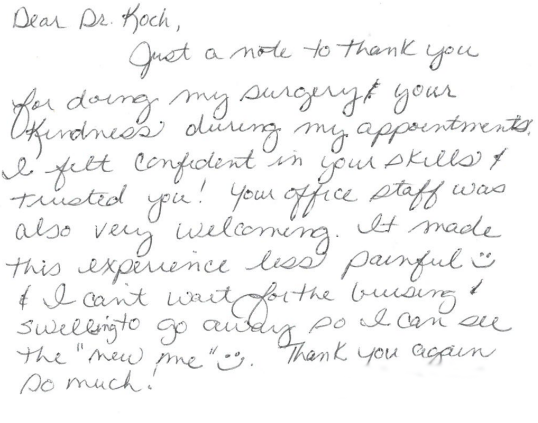 Dear Dr. Koch,
Just a note to thank you
for doing my surgery & your
kindness during my appointments.
I felt confident in your skills &
trusted you! Your office staff was
also very welcoming. It made
this experience less painful ☺
& I can't wait for the bruising &
swelling to go away so I can see
the "new me" ☺. Thank you again
so much!